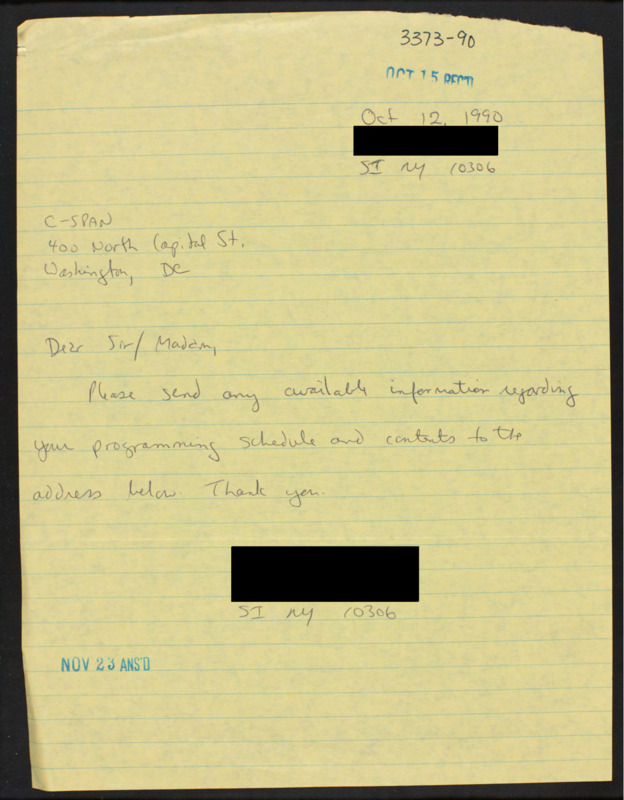 3373-90
OCT 15 REC'D
Oct 12, 1990
SI NY 10306
C-SPAN
400 North Capital St.
Washington, DC
Dear Sir/Madam,
Please send any available information regarding
your programming schedule and contents to the
address below. Thank you.
SI NY 10306
NOV 23 ANS'D